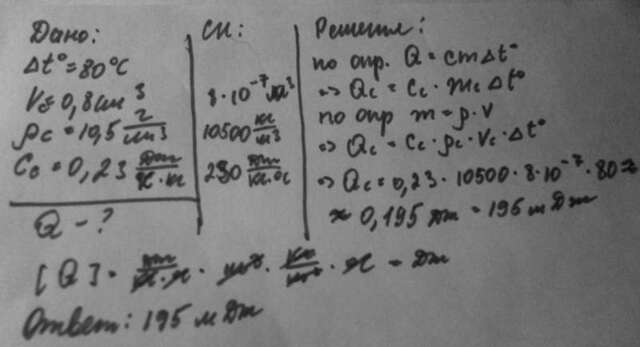 Дано:
Δt°=80°C
Vс=0,8см³
ρс=10,5 г/см³
Cс=0,23 Дж/К·кг
Q - ?
СИ:
8·10⁻⁷м³
10500 кг/м³
230 Дж/кг·°С
Решение:
по опр. Q = cmΔt°
⇒ Qс = Cс · mс Δt°
по опр m = ρ·V
⇒ Qс = Cс · ρс · Vс · Δt°
⇒ Qс = 0,23 · 10500 · 8·10⁻⁷ · 80 ≈
≈ 0,195 Дж = 195 м Дж
[Q] = · м³ · кг/м³ · = Дж
Ответ: 195 м Дж